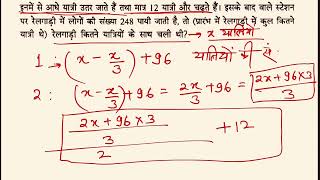 इनमें से आधे यात्री उतर जाते हैं तथा मात्र 12 यात्री और चढ़ते हैं। इसके बाद वाले स्टेशन
पर रेलगाड़ी में लोगों की संख्या 248 पायी जाती है, तो (प्रारंभ में रेलगाड़ी में कुल कितने
यात्री थे) रेलगाड़ी कितने यात्रियों के साथ चली थी? → x
1 : (x - x/3) + 96
यात्रियों की सं
2 : (x - x/3) + 96 = 2x/3 + 96 = (2x + 96 × 3)/3
((2x + 96 × 3)/3)/2 + 12